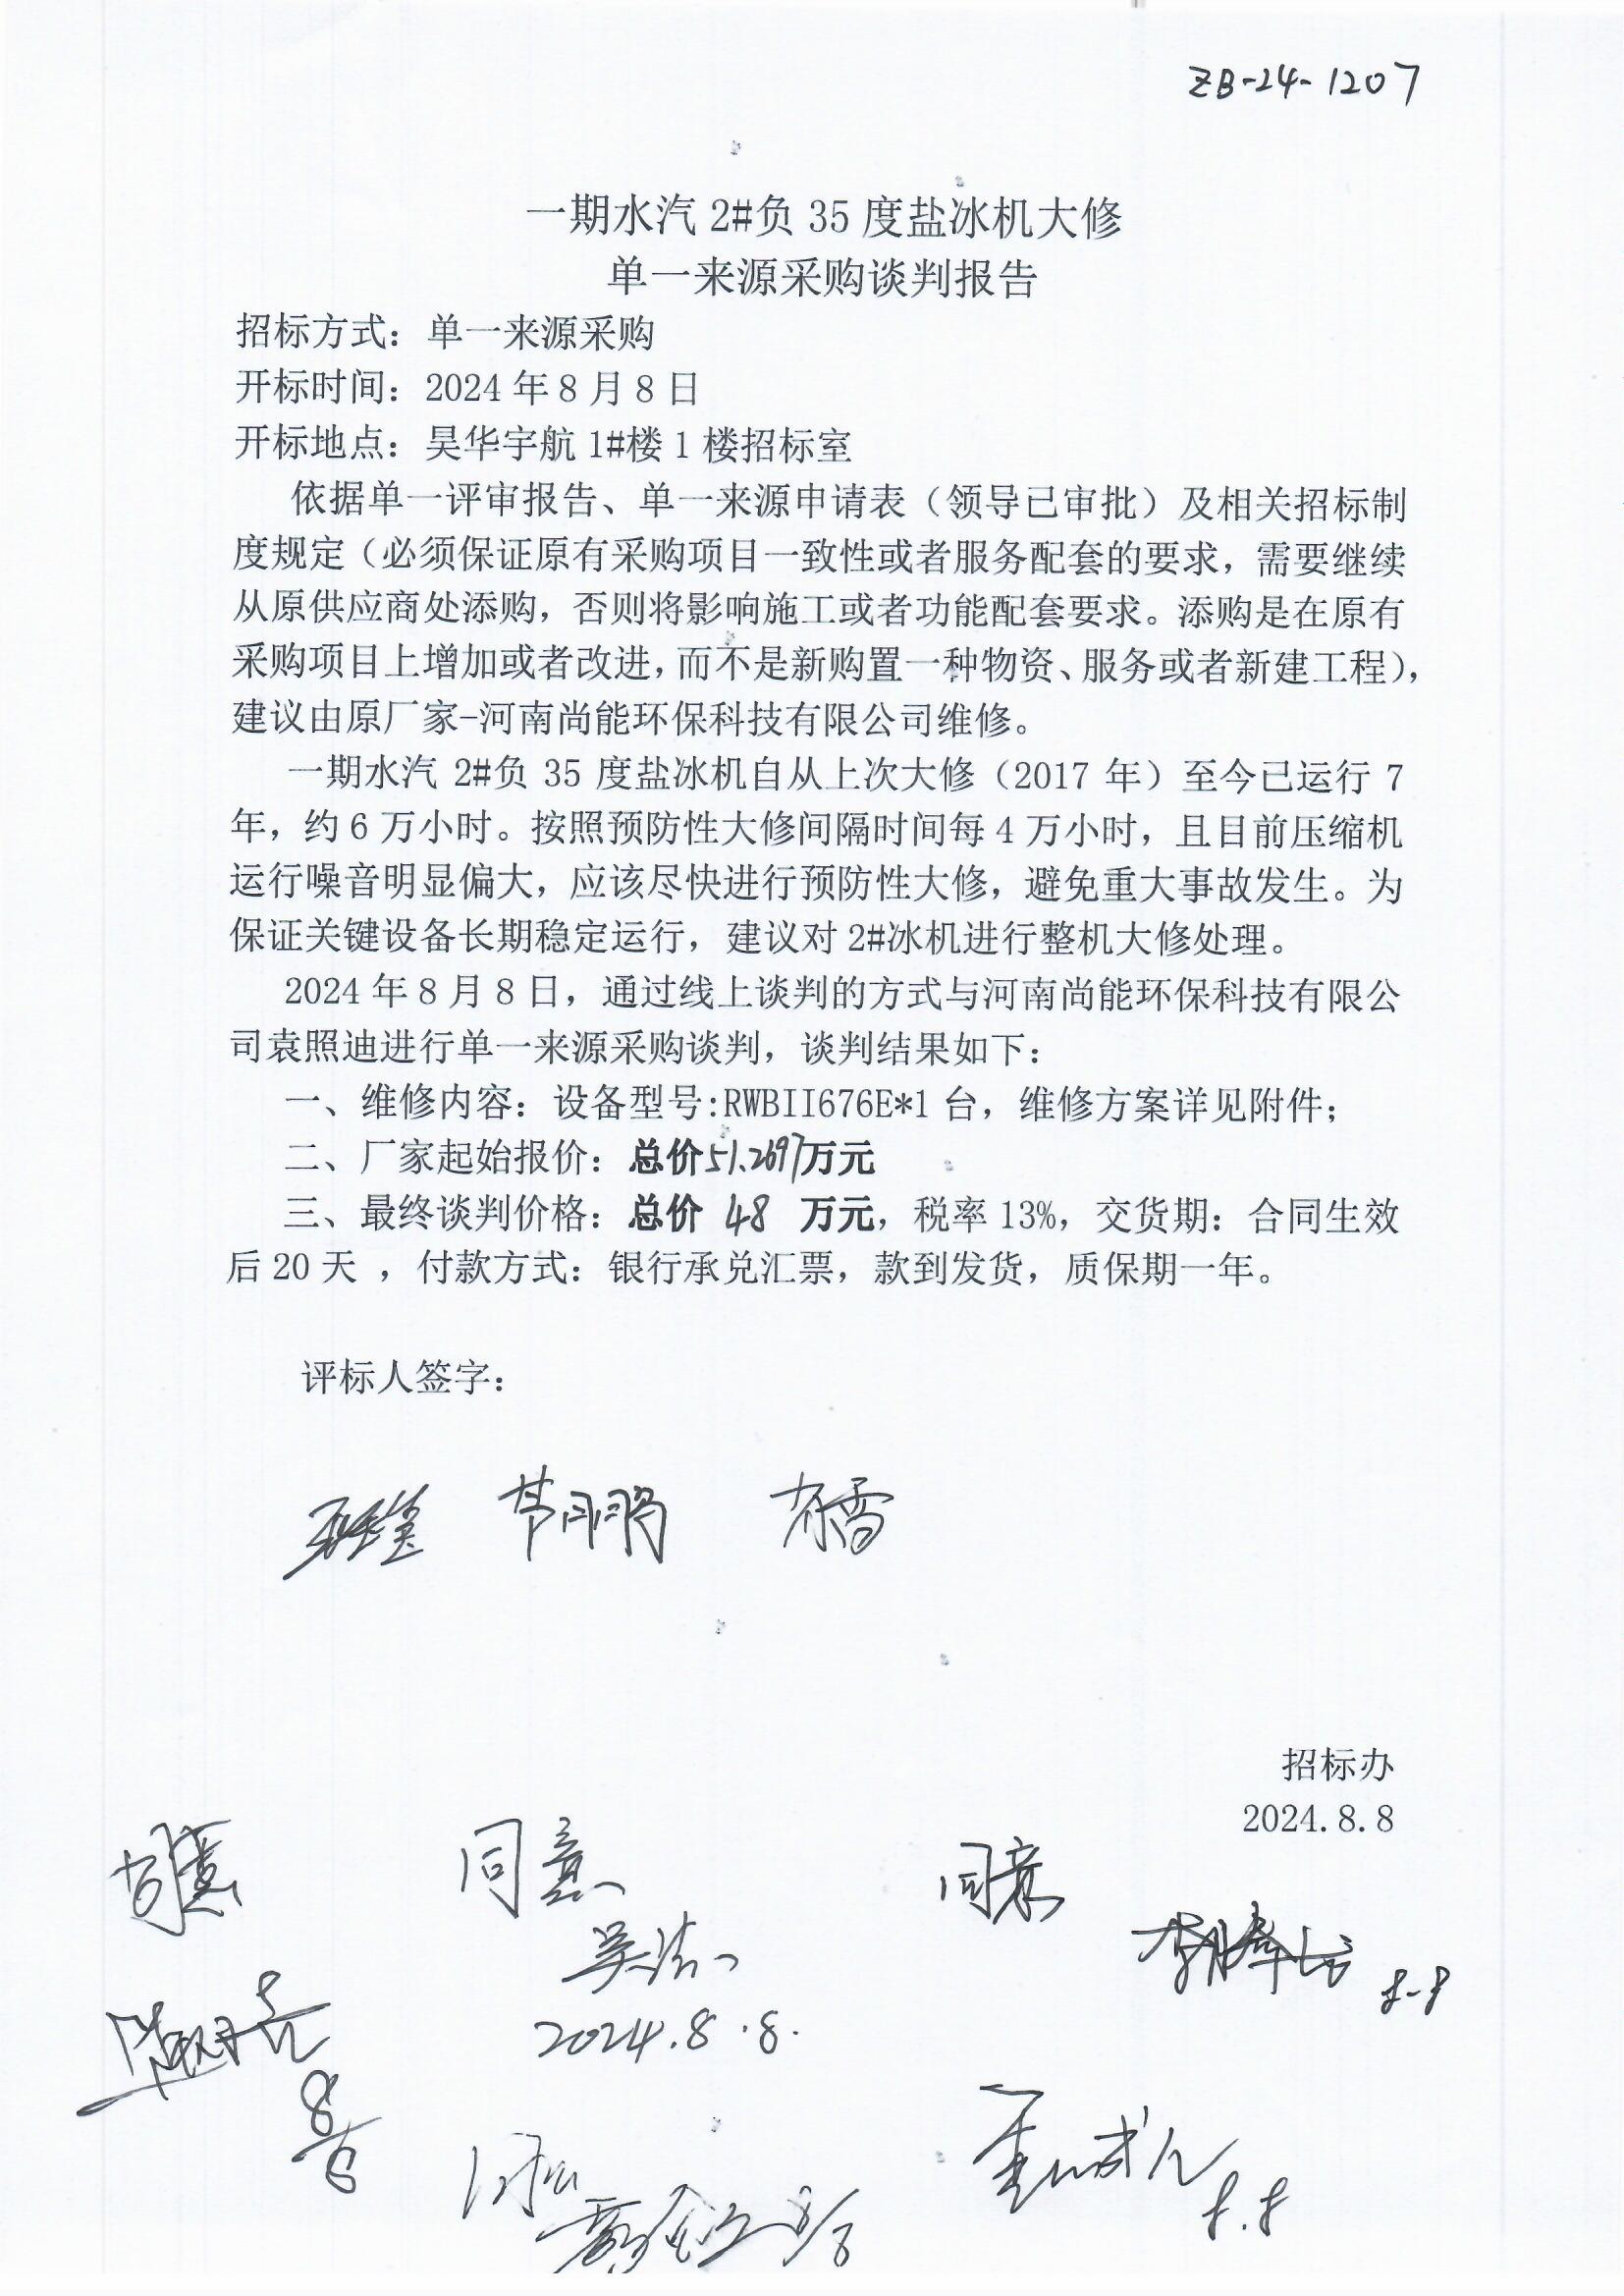 ZB-24-1207
一期水汽2#负35度盐冰机大修
单一来源采购谈判报告
招标方式：单一来源采购
开标时间：2024年8月8日
开标地点：昊华宇航1#楼1楼招标室
依据单一评审报告、单一来源申请表（领导已审批）及相关招标制
度规定（必须保证原有采购项目一致性或者服务配套的要求，需要继续
从原供应商处添购，否则将影响施工或者功能配套要求。添购是在原有
采购项目上增加或者改进，而不是新购置一种物资、服务或者新建工程），
建议由原厂家-河南尚能环保科技有限公司维修。
一期水汽 2#负 35 度盐冰机自从上次大修（2017 年）至今已运行 7
年，约6万小时。按照预防性大修间隔时间每4万小时，且目前压缩机
运行噪音明显偏大，应该尽快进行预防性大修，避免重大事故发生。为
保证关键设备长期稳定运行，建议对2#冰机进行整机大修处理。
2024年8月8日，通过线上谈判的方式与河南尚能环保科技有限公
司袁照迪进行单一来源采购谈判，谈判结果如下：
一、维修内容：设备型号:RWBII676E*1台，维修方案详见附件；
二、厂家起始报价：总价51.2697万元
三、最终谈判价格：总价 48 万元，税率13%，交货期：合同生效
后20天 ，付款方式：银行承兑汇票，款到发货，质保期一年。
评标人签字：
招标办
2024.8.8
同意
同意
8-8
2024.8.8.
8/8
8/8
8.8